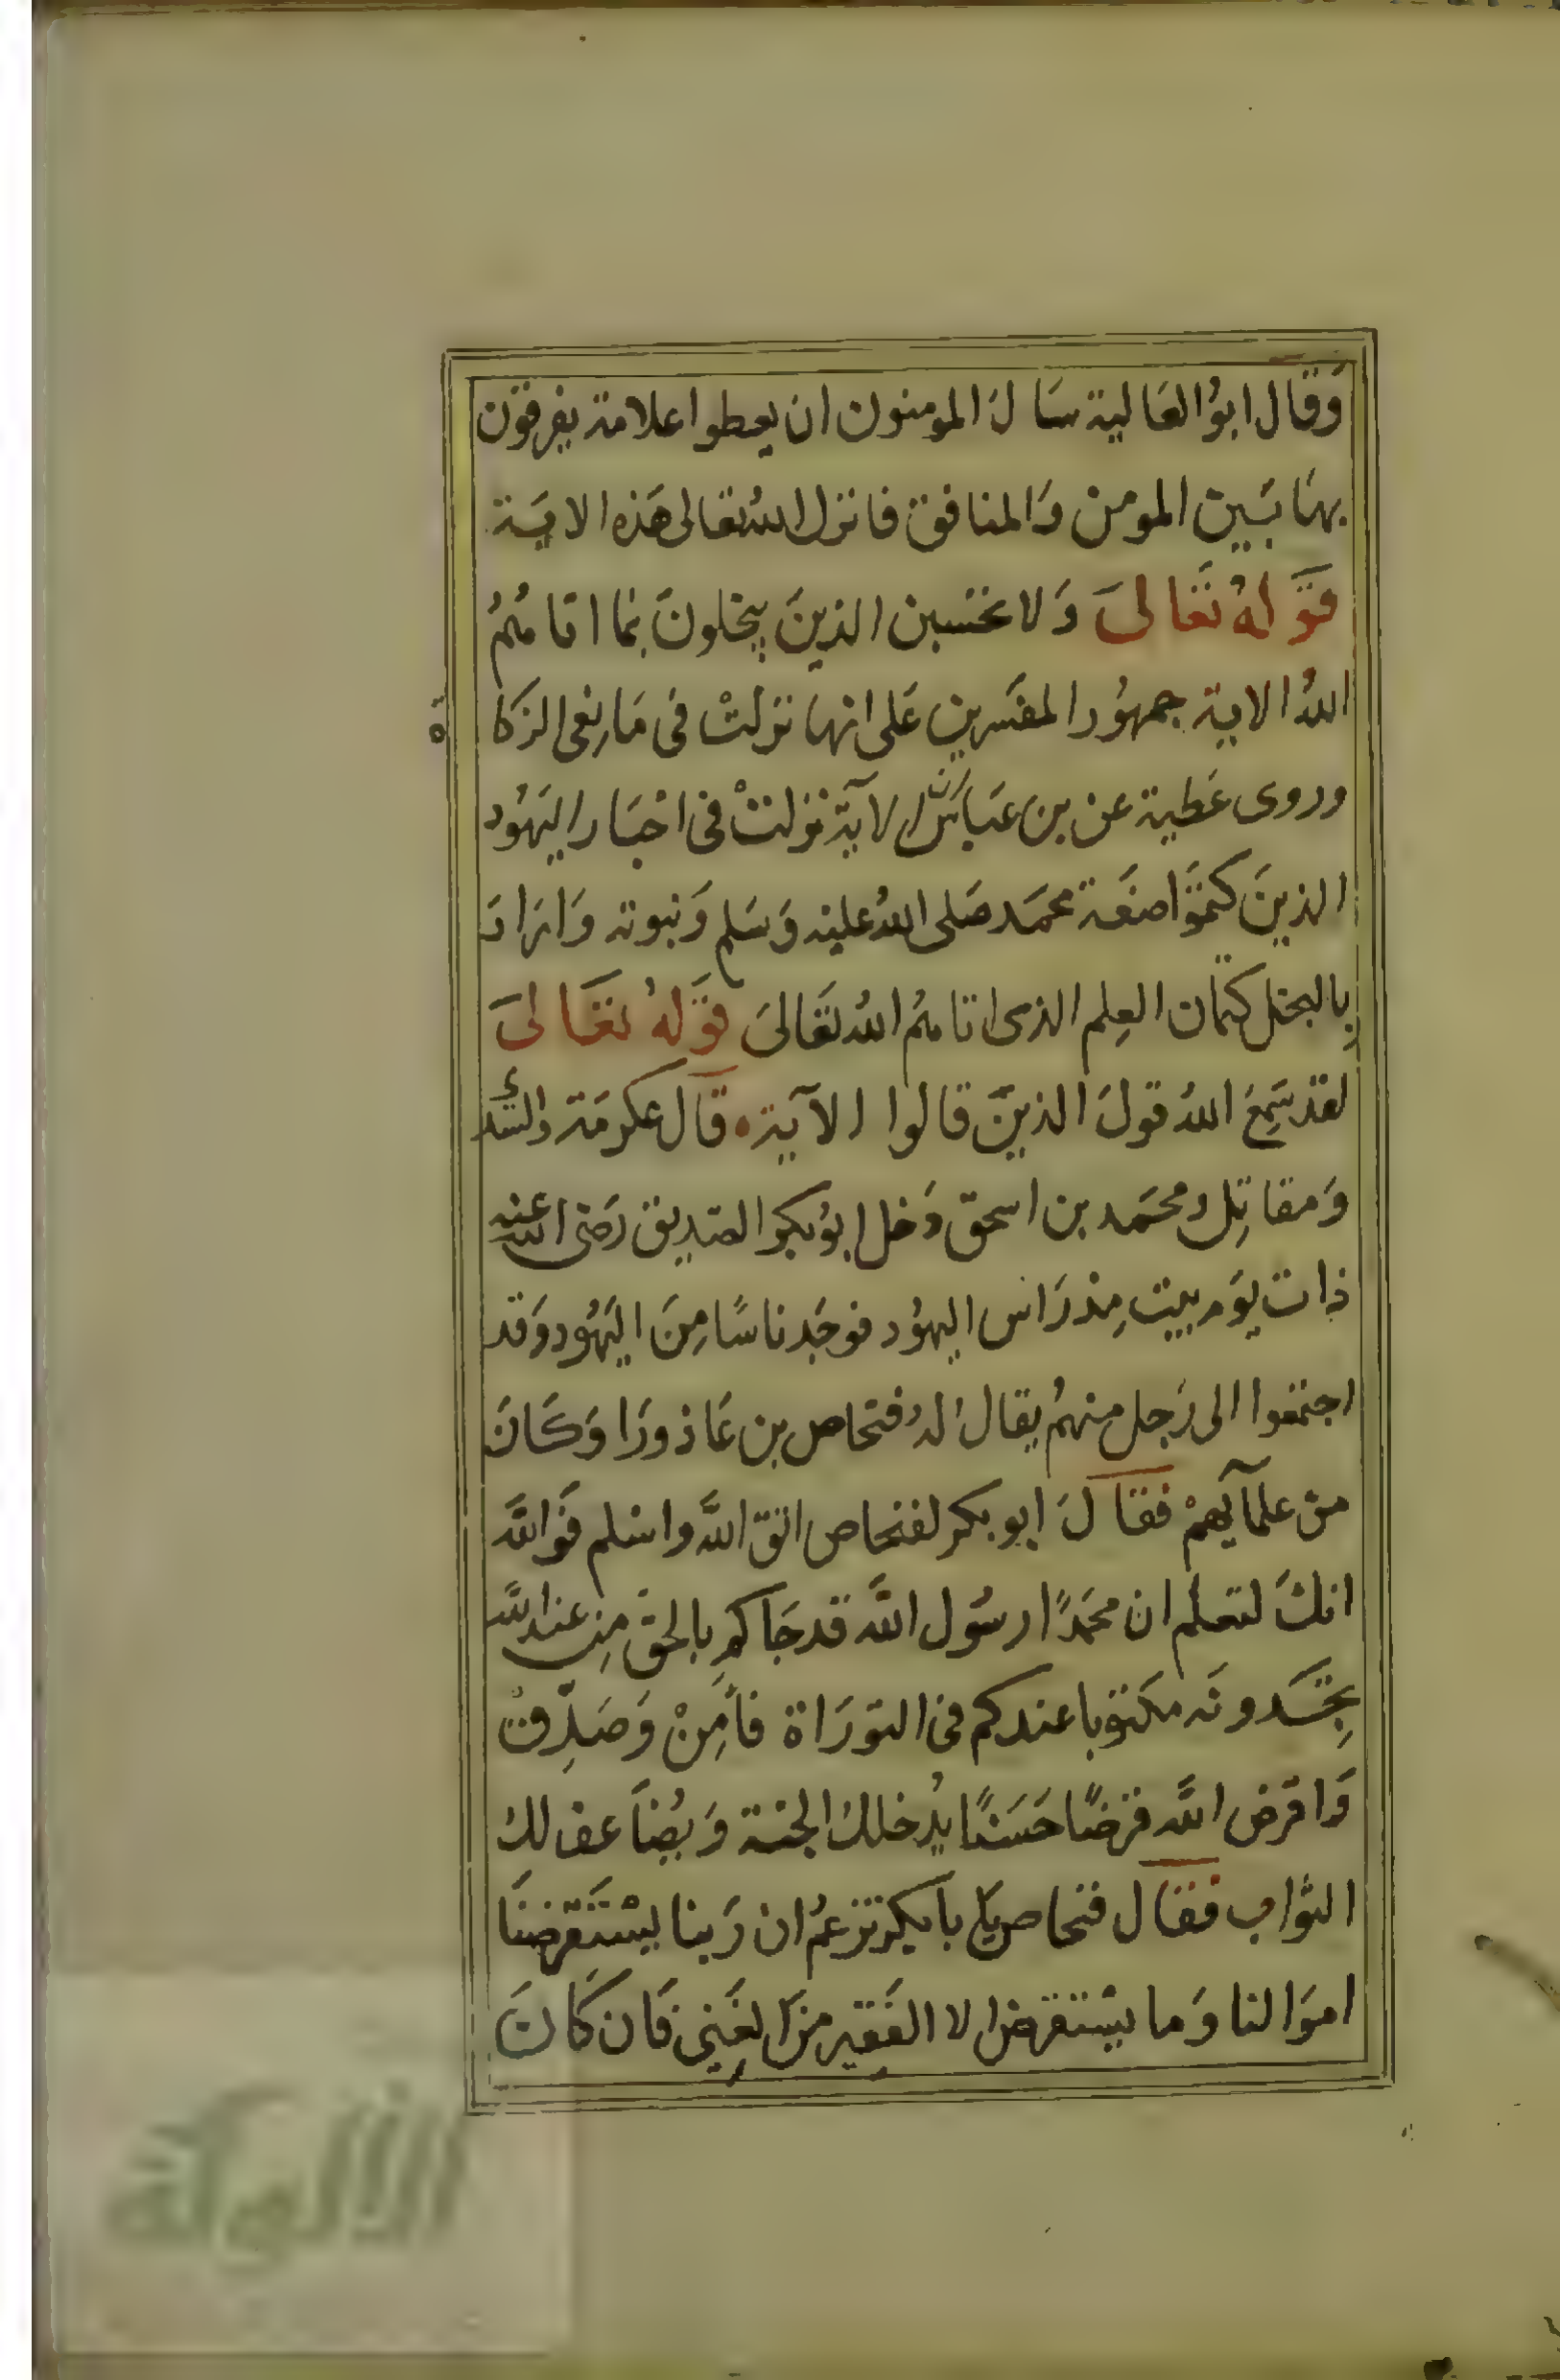 وَقَال ابوُ العَالية سَال المومنون ان يعطوا علامة يفرقون
بهَا بَيين المومن وَالمنافق فانزل اللهُ تعالى هَذه الايَة
قوَلهُ تعَالىَ وَلا تحسبن الذينَ يبخلونَ بمَا اتاهُمُ
اللهُ الاية جمهوُر المفسَرين عَلى انها نزلتْ فى مَانعى الزكاة
وروى عَطية عن بن عبَاس ان الآية نزلتْ فى احْبَار اليَهوُد
الذينَ كتموَا صفَة محمَد صَلى اللهُ عليه وَسَلم وَنبوته وَارَادَ
بالبخل كتمان العِلم الذى اتاهُم اللهُ تعَالىَ قوَلهُ تعَالىَ
لقد سَمِعَ اللهُ قولَ الذينَ قالوا الآية قال عكرمَة والسّدىّ
وَمقاتِل ومحمَد بن اسحق دَخل ابوُ بكر الصّديق رَضى الله عنه
ذات يوَم بيت مِدْرَاس اليهوُد فوجَد ناسًا مِنَ اليَهوُد وَقد
اجتمعوا الى رَجل منهمُ يقال لهُ فنحاص بن عَاذورَا وَكَانَ
من علمآيهمْ فقالَ ابو بكر لفنحاص اتق اللَّه واسْلم فوَاللَّه
انكَ لتعلم ان محمَدًا رسُول اللَّه قد جَاكمِ بالحق مِن عند اللَّه
تجِدونَه مكتوبا عندكم فى التورَاة فأمِنْ وَصَدِّقْ
وَاقرض اللَّه قرضًا حَسَنًا يُدخلك الجنة وَيُضَاعف لك
الثوَاب فقال فنحاص يَا با بكر تزعمُ ان رَبنا يسْتَقرضنَا
اموَالنا وَما يسْتقرض الا الفَقير مِنَ الغَنِي فَان كَانَ
الألوكة